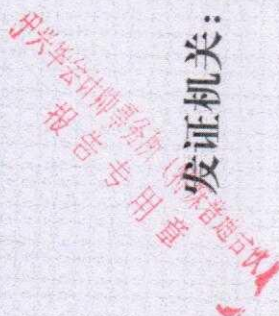 发证机关：
中兴华会计师事务所（特殊普通合伙）
报告专用章